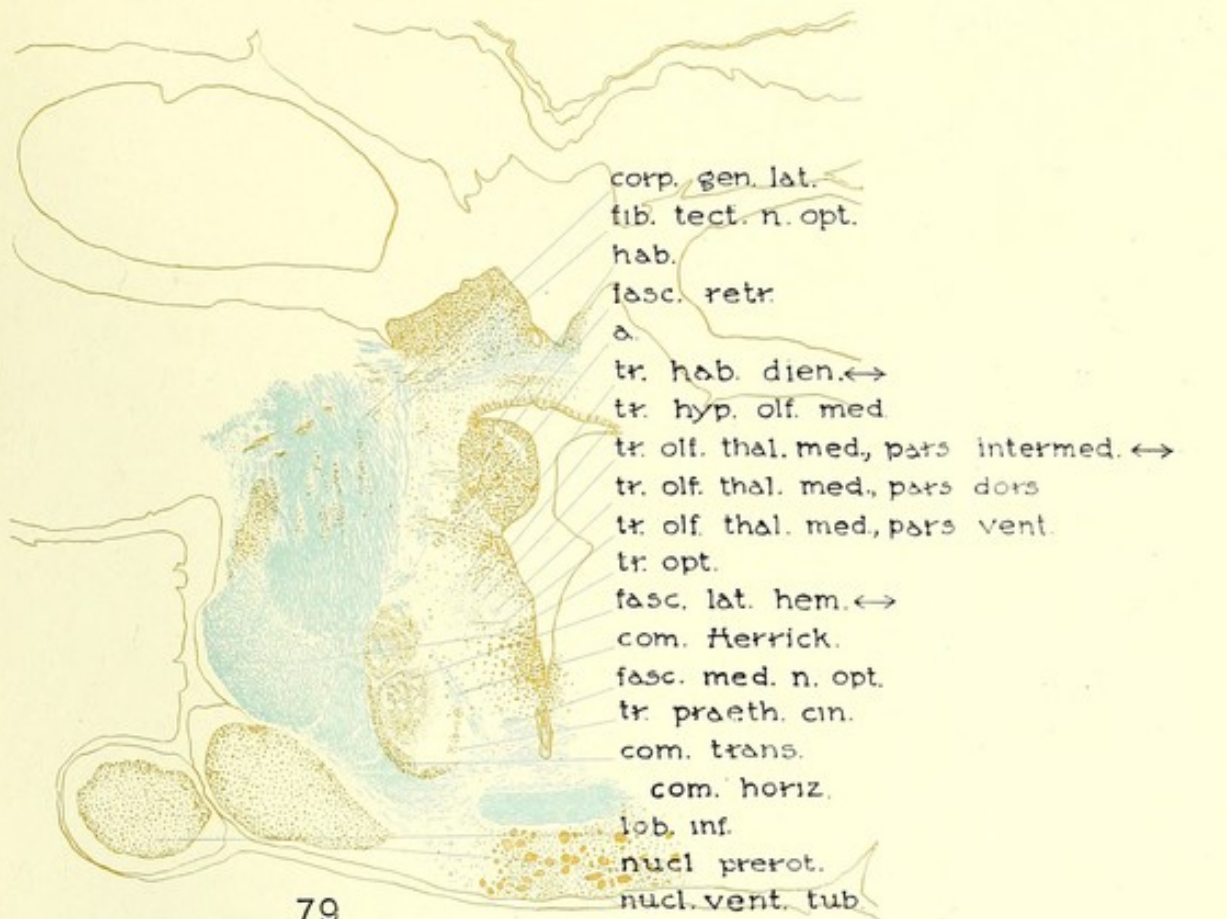 corp. gen. lat.
fib. tect. n. opt.
hab.
fasc. retr.
a.
tr. hab. dien.↔
tr. hyp. olf. med.
tr. olf. thal. med., pars intermed. ↔
tr. olf. thal. med., pars dors
tr. olf. thal. med., pars vent.
tr. opt.
fasc. lat. hem.↔
com. Herrick.
fasc. med. n. opt.
tr. praeth. cin.
com. trans.
com. horiz.
lob. inf.
nucl prerot.
nucl. vent. tub.
79